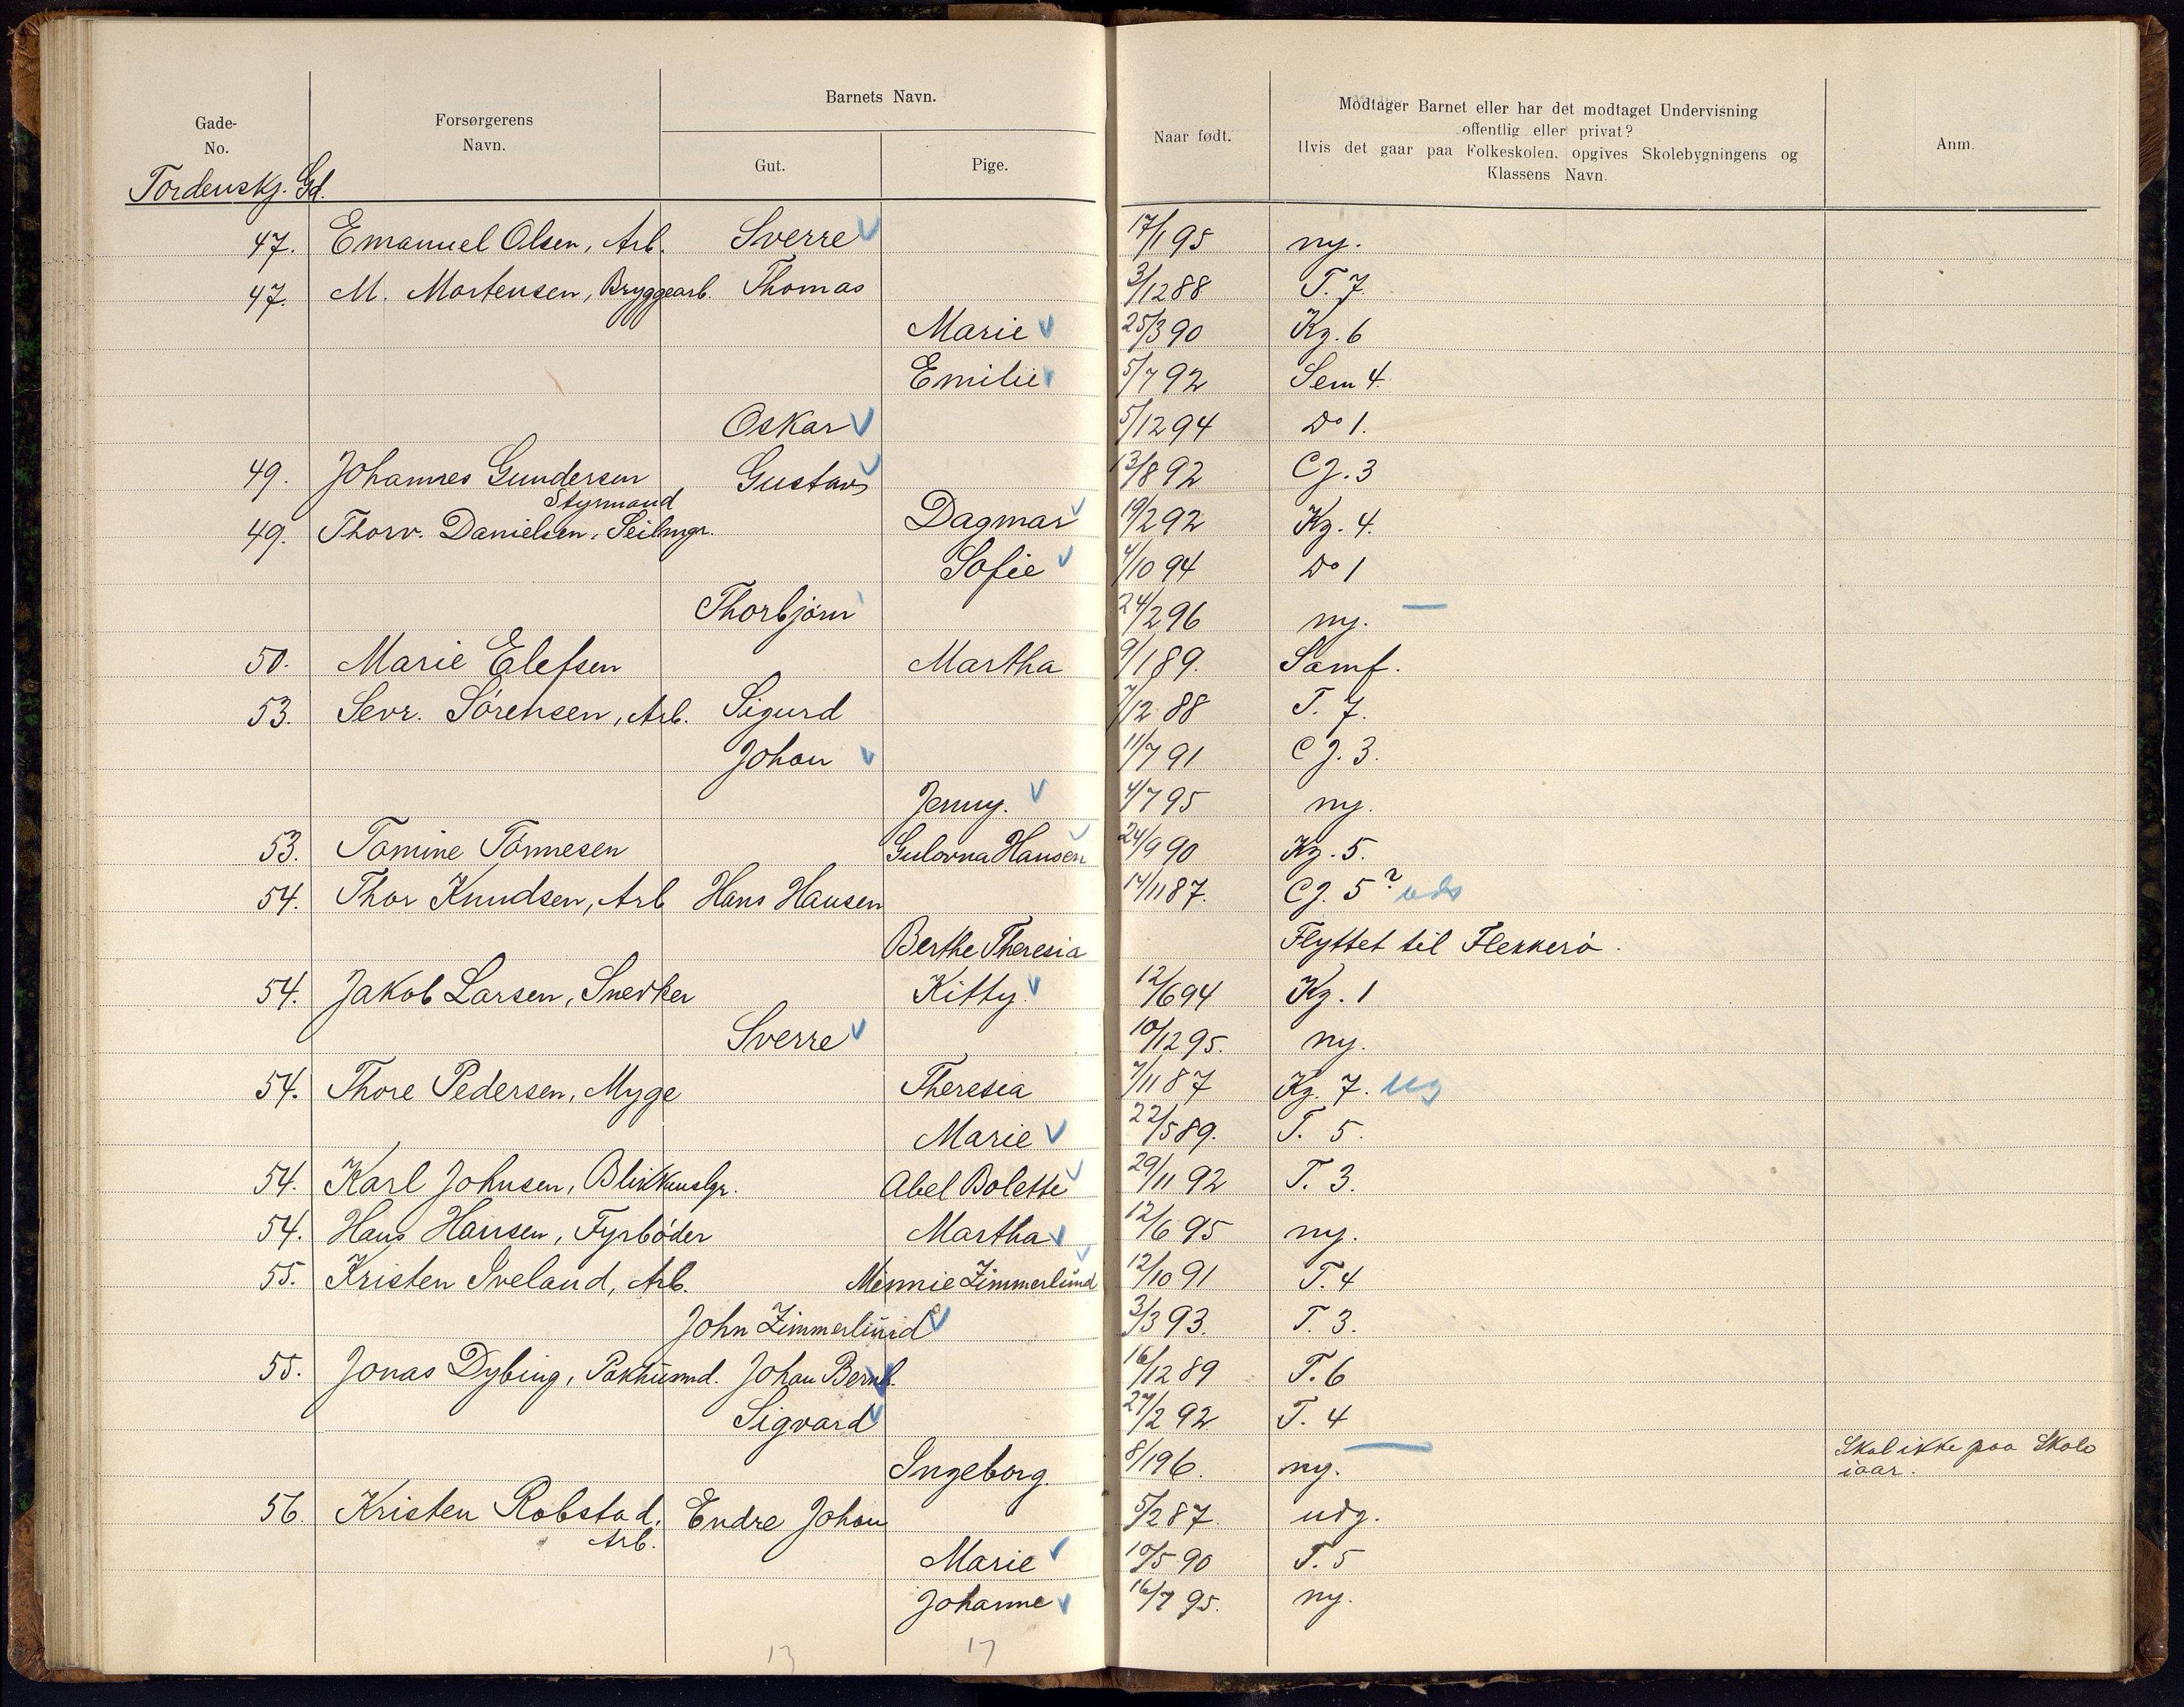 Barnets Navn.
Gade-
No.
Forsørgerens
Navn.
Gut.
Pige.
Naar født.
Modtager Barnet eller har det modtaget Undervisning
offentlig eller privat?
Hvis det gaar paa Folkeskolen, opgives Skolebygningens og
Klassens Navn.
Anm.
Tordenskj. Gd.
47. Emanuel Olsen, Arb. Sverre 17/1 95 ny.
47. M. Mortensen, Bryggearb. Thomas 3/12 88 T. 7.
Marie 25/3 90 Kg. 6
Emilie 5/7 92 Sem 4.
Oskar 5/12 94 Do 1.
49. Johannes Gundersen Gustav 13/8 92 CJ. 3
Styrmand
49. Thorv. Danielsen, Seilmgr. Dagmar 19/2 92 Kg. 4.
Sofie 4/10 94 Do 1
Thorbjørn 24/2 96 ny.
50. Marie Elefsen Martha 9/1 89. Samf.
53. Sevr. Sørensen, Arb. Sigurd 7/12 88 T. 7.
Johan 11/7 91 CJ. 3.
Jenny. 4/7 95 ny.
53. Tomine Tønnesen Gulovna Hansen 24/9 90 Kg. 5.
54. Thor Knudsen, Arb Hans Hansen 14/11 87. CJ. 5?
Berthe Theresia Flyttet til Flekkerø.
54. Jakob Larsen, Snedker Kitty. 12/6 94 Kg. 1
Sverre 10/12 95. ny.
54. Thore Pedersen, Myge Theresia 7/11 87 Kg. 7.
Marie 22/5 89. T. 5.
54. Karl Johnsen, Blikkenslgr. Abel Bolette 29/11 92 T. 3.
54. Hans Hansen, Fyrbøder Martha 12/6 95 ny.
55. Kristen Sveland, Arb. Minnie Zimmerlund 12/10 91 T. 4
John Zimmerlund 3/3 93. T. 3.
55. Jonas Dybing, Pakhusmd. Johan Bernh. 16/12 89 T. 6
Sigvard 27/2 92 T. 4
Ingeborg. 8/1 96. ny. Skal ikke paa Skole
iaar.
56. Kristen Robstad, Endre Johan 5/2 87. udg.
Arb.
Marie 10/5 90 T. 5
Johanne 16/7 95. ny.
13 17